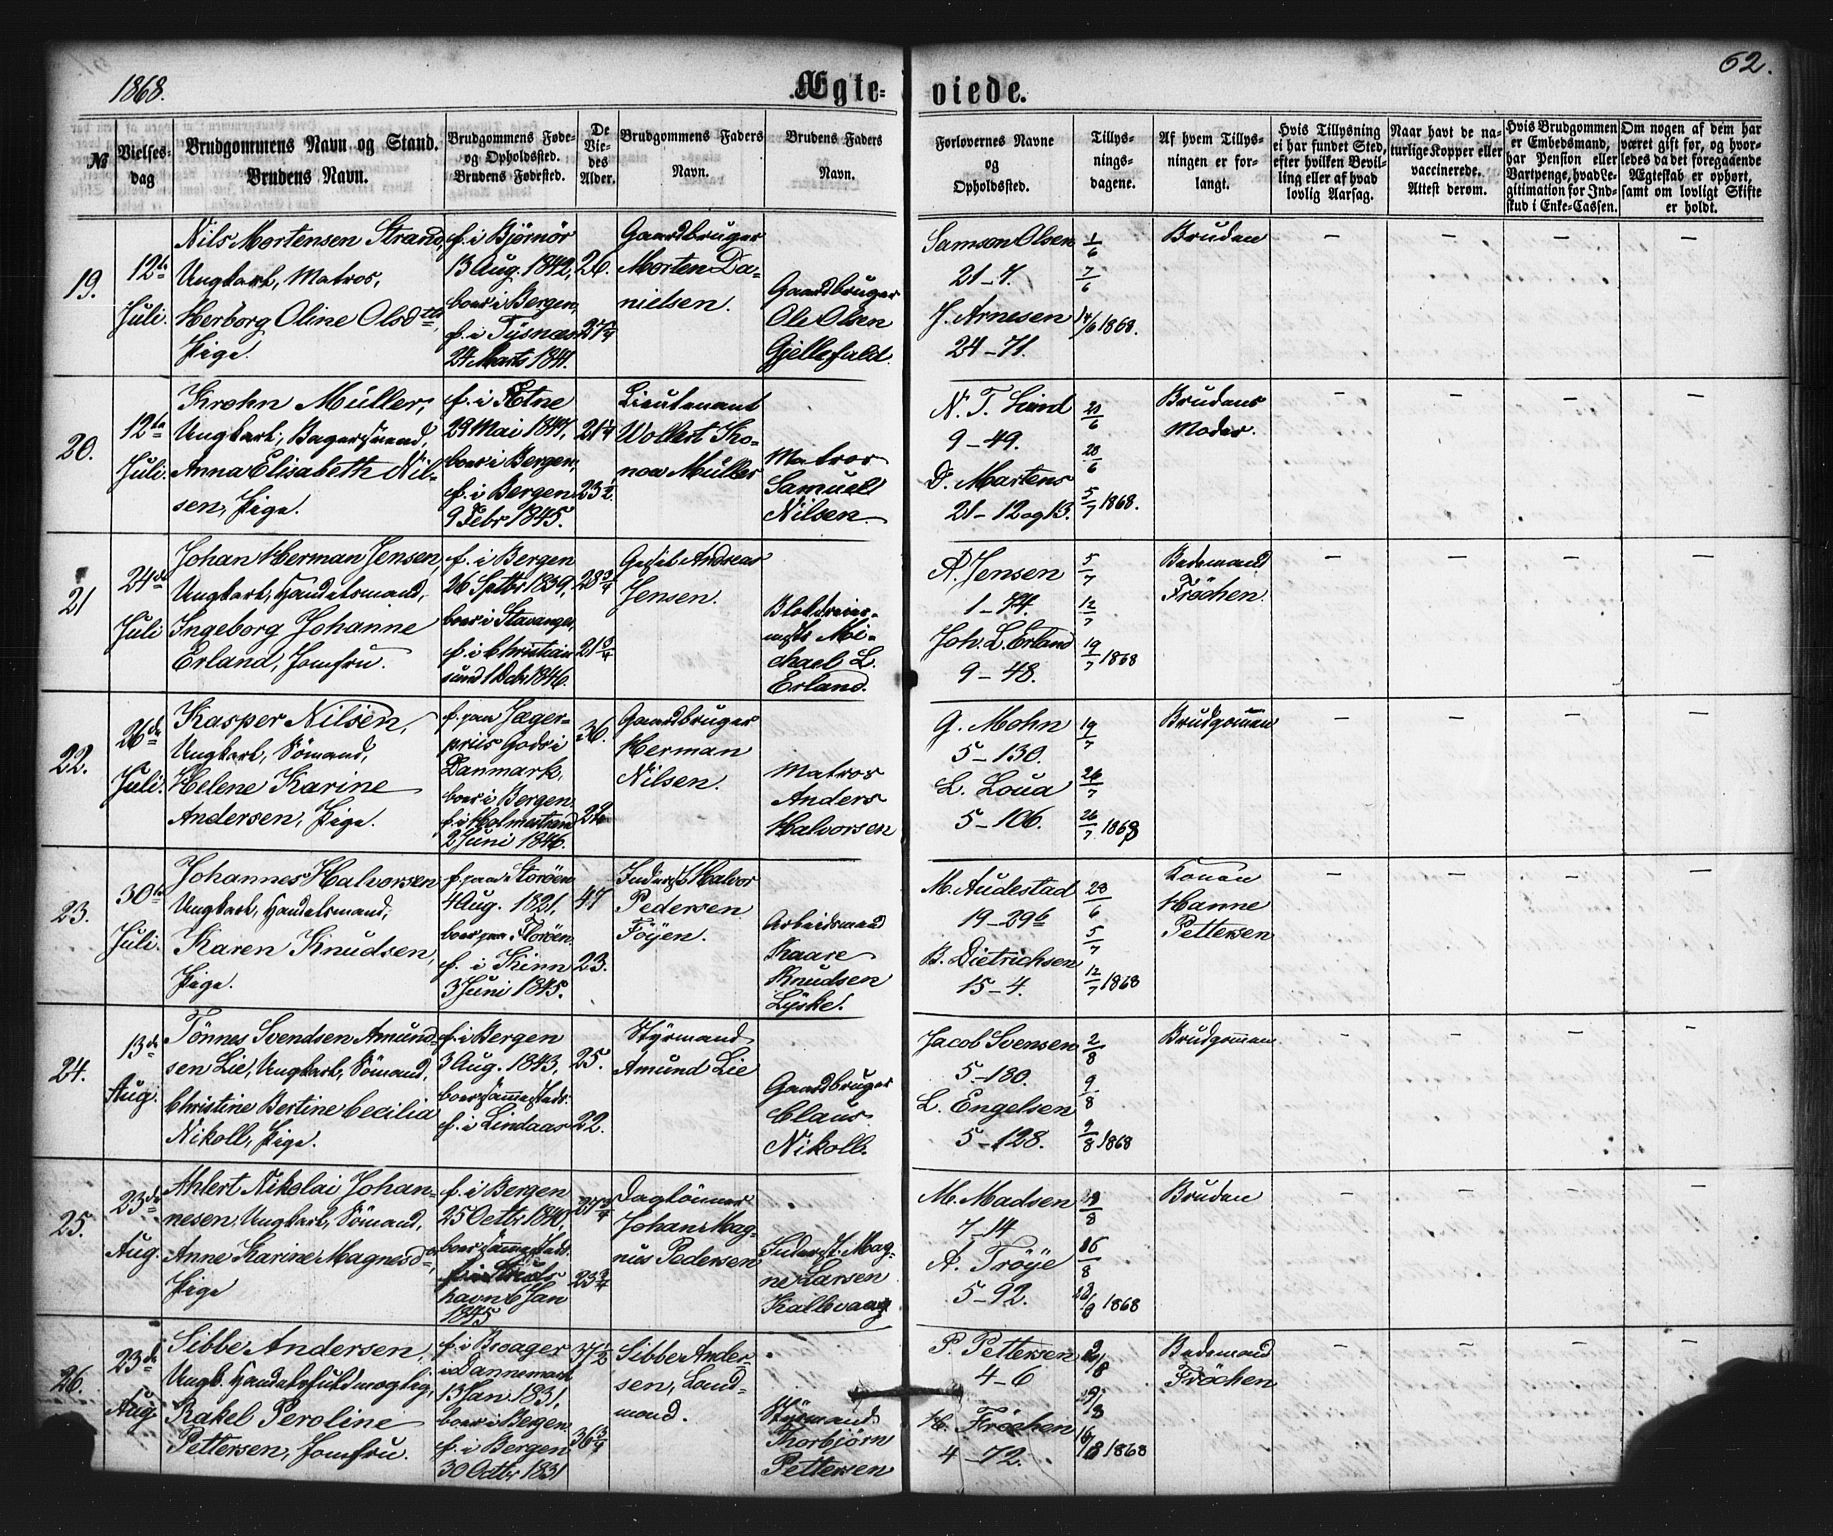 1868.
Ægte-
viede.
62.
№
Vielses-
dag
Brudgommens Navn og Stand.
Brudens Navn.
Brudgommens Føde-
og Opholdssted.
Brudens Fødested.
De
Vie-
des
Alder.
Brudgommens Faders
Navn.
Brudens Faders
Navn.
Forlovernes Navne
og
Opholdssted.
Tillys-
nings-
dagene.
Af hvem Tillys-
ningen er for-
langt.
Hvis Tillysning
ei har fundet Sted,
efter hvilken Bevil-
ling eller af hvad
lovlig Aarsag.
Naar havt de na-
turlige Kopper eller
vaccinerede.
Attest derom.
Hvis Brudgommen
er Embedsmand,
har Pension eller
Vartpenge, hvad Le-
gitimation for Ind-
skud i Enke-Cassen.
Om nogen af dem har
været gift før, og hvor-
ledes da det foregaaende
Ægteskab er ophørt,
samt om lovligt Skifte
er holdt.
19.
12te
Juli.
Nils Mortensen Strand,
Ungkarl, Matros,
Herborg Oline Olsdtr,
Pige.
f. i Bjørnør
13 Aug. 1842,
boer i Bergen,
f. i Tysnæs
24 Marts 1841.
26.
27 1/4
Gaardbruger
Morten Da-
nielsen.
Gaardbruger
Ole Olsen
Gjellefald.
Samson Olsen
21-7.
J. Arnesen
24-71.
1/6
7/6
14/6 1868.
Bruden
20.
12te
Juli.
Krohn Müller,
Ungkarl, Bagersvend,
Anna Elisabeth Nil-
sen, Pige.
f. i Etne
29 Mai 1847,
boer i Bergen,
f. i Bergen
9 Febr 1845.
21 1/4
23 1/2.
Lieutenant
Wolkert Ko-
now Müller
Matros
Samuel
Nilsen
N. T. Lund
9-49.
D. Martens
21-12 og 13.
21/6
28/6
5/7 1868.
Brudens
Moder.
21
24de
Juli
Johan Herman Jensen,
Ungkarl, Handelsmand,
Ingeborg Johanne
Erland, Jomfru.
f. i Bergen
26 Septbr 1839,
boer i Stavanger,
f. i Christian
sund 1 Dcb 1846.
28 3/4
21 3/4
Gesel Andreas
Jensen.
Blokdreier-
mestr Mi-
chael L.
Erland.
A. Jensen
1-74.
Joh. L. Erland
9-48.
5/7
12/7
19/7 1868
Bedemand
Fröchen.
22.
26de
Juli.
Kasper Nilsen,
Ungkarl, Sömand,
Helene Karine
Andersen, Pige.
f. paa Jæger-
priis Gods i
Danmark,
boer i Bergen
f. i Holmestrand
2 Juni 1846.
36.
22.
Gaardbruger
Herman
Nilsen.
Matros
Anders
Halvorsen
G. Mohn
5-130.
L. Loua
5-106.
19/7
26/7
26/7 1868
Brudgommen
23.
30te
Juli.
Johannes Halvorsen
Ungkarl, Handelsmand,
Karen Knudsen,
Pige.
f. paa Florøen
4 Aug. 1821,
boer paa Florøen
f. i Kinn
3 Juni 1845.
47
23.
Inderst Halvor
Pedersen
Föyen.
Arbeidsmand
Kaare
Knudsen
Lyske.
M. Audestad
19-29b
B. Dietrichsen
15-4.
28/6
5/7
12/7 1868
Konen
Hanne
Pettersen
24.
13de
Aug.
Tönnes Svendsen Amund-
sen Lie, Ungkarl, Sömand,
Christine Bertine Cecilia
Nikoll, Pige.
f. i Bergen
3 Aug. 1843,
boer sammesteds.
f. i Lindaas
25.
22.
Styrmand
Amund Lie
Gaardbruger
Claus
Nikoll.
Jacob Svensen
5-180.
L. Engelsen
5-128.
2/8
9/8
9/8 1868
Brudgommen
25.
23de
Aug.
Ahlert Nikolai Johan-
nesen, Ungkarl, Sömand,
Anne Karine Magnesdtr,
Pige
f. i Bergen
25 Octbr 1840,
boer sammesteds
havn 6 Jan
1845
27 3/4
23 3/4
Daglönner
Johan Mag-
nus Pedersen
Inderst Mag-
ne Larsen
Kallevaag
M. Madsen
7-14
A. Tröye
5-92.
16/8
1868
Bruden
26.
23de
Aug
Sibbe Andersen,
Ungk. Handelsfuldmægtig,
Rakel Peroline
Pettersen, Jomfru.
f. i Broager
i Dannemark
13 Jan. 1831,
boer i Bergen.
f. i Bergen
30 Octbr 1831
37 1/2
36 3/4
Sibbe Ander-
sen, Land-
mand.
Styrmand
Thorbjörn
Pettersen
P. Pettersen
4-6
H. Fröchen
4-72.
2/8
1868
Bedemand
Fröchen